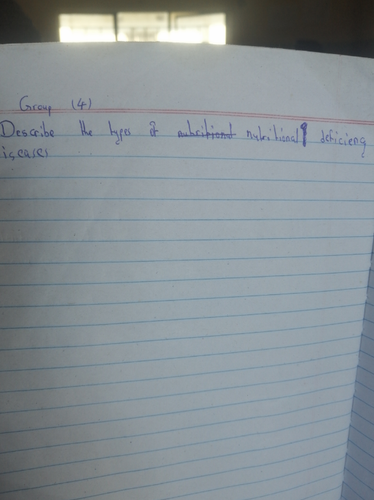 Group (4)
Describe the types of nutritional nutritional deficiency
iseases